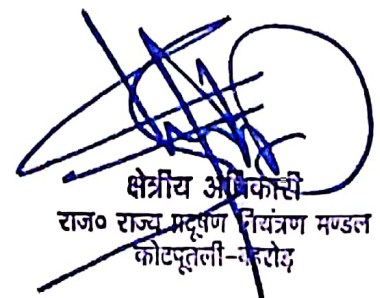 क्षेत्रीय अधिकारी
राज० राज्य प्रदूषण नियंत्रण मण्डल
कोटपूतली-बहरोड़